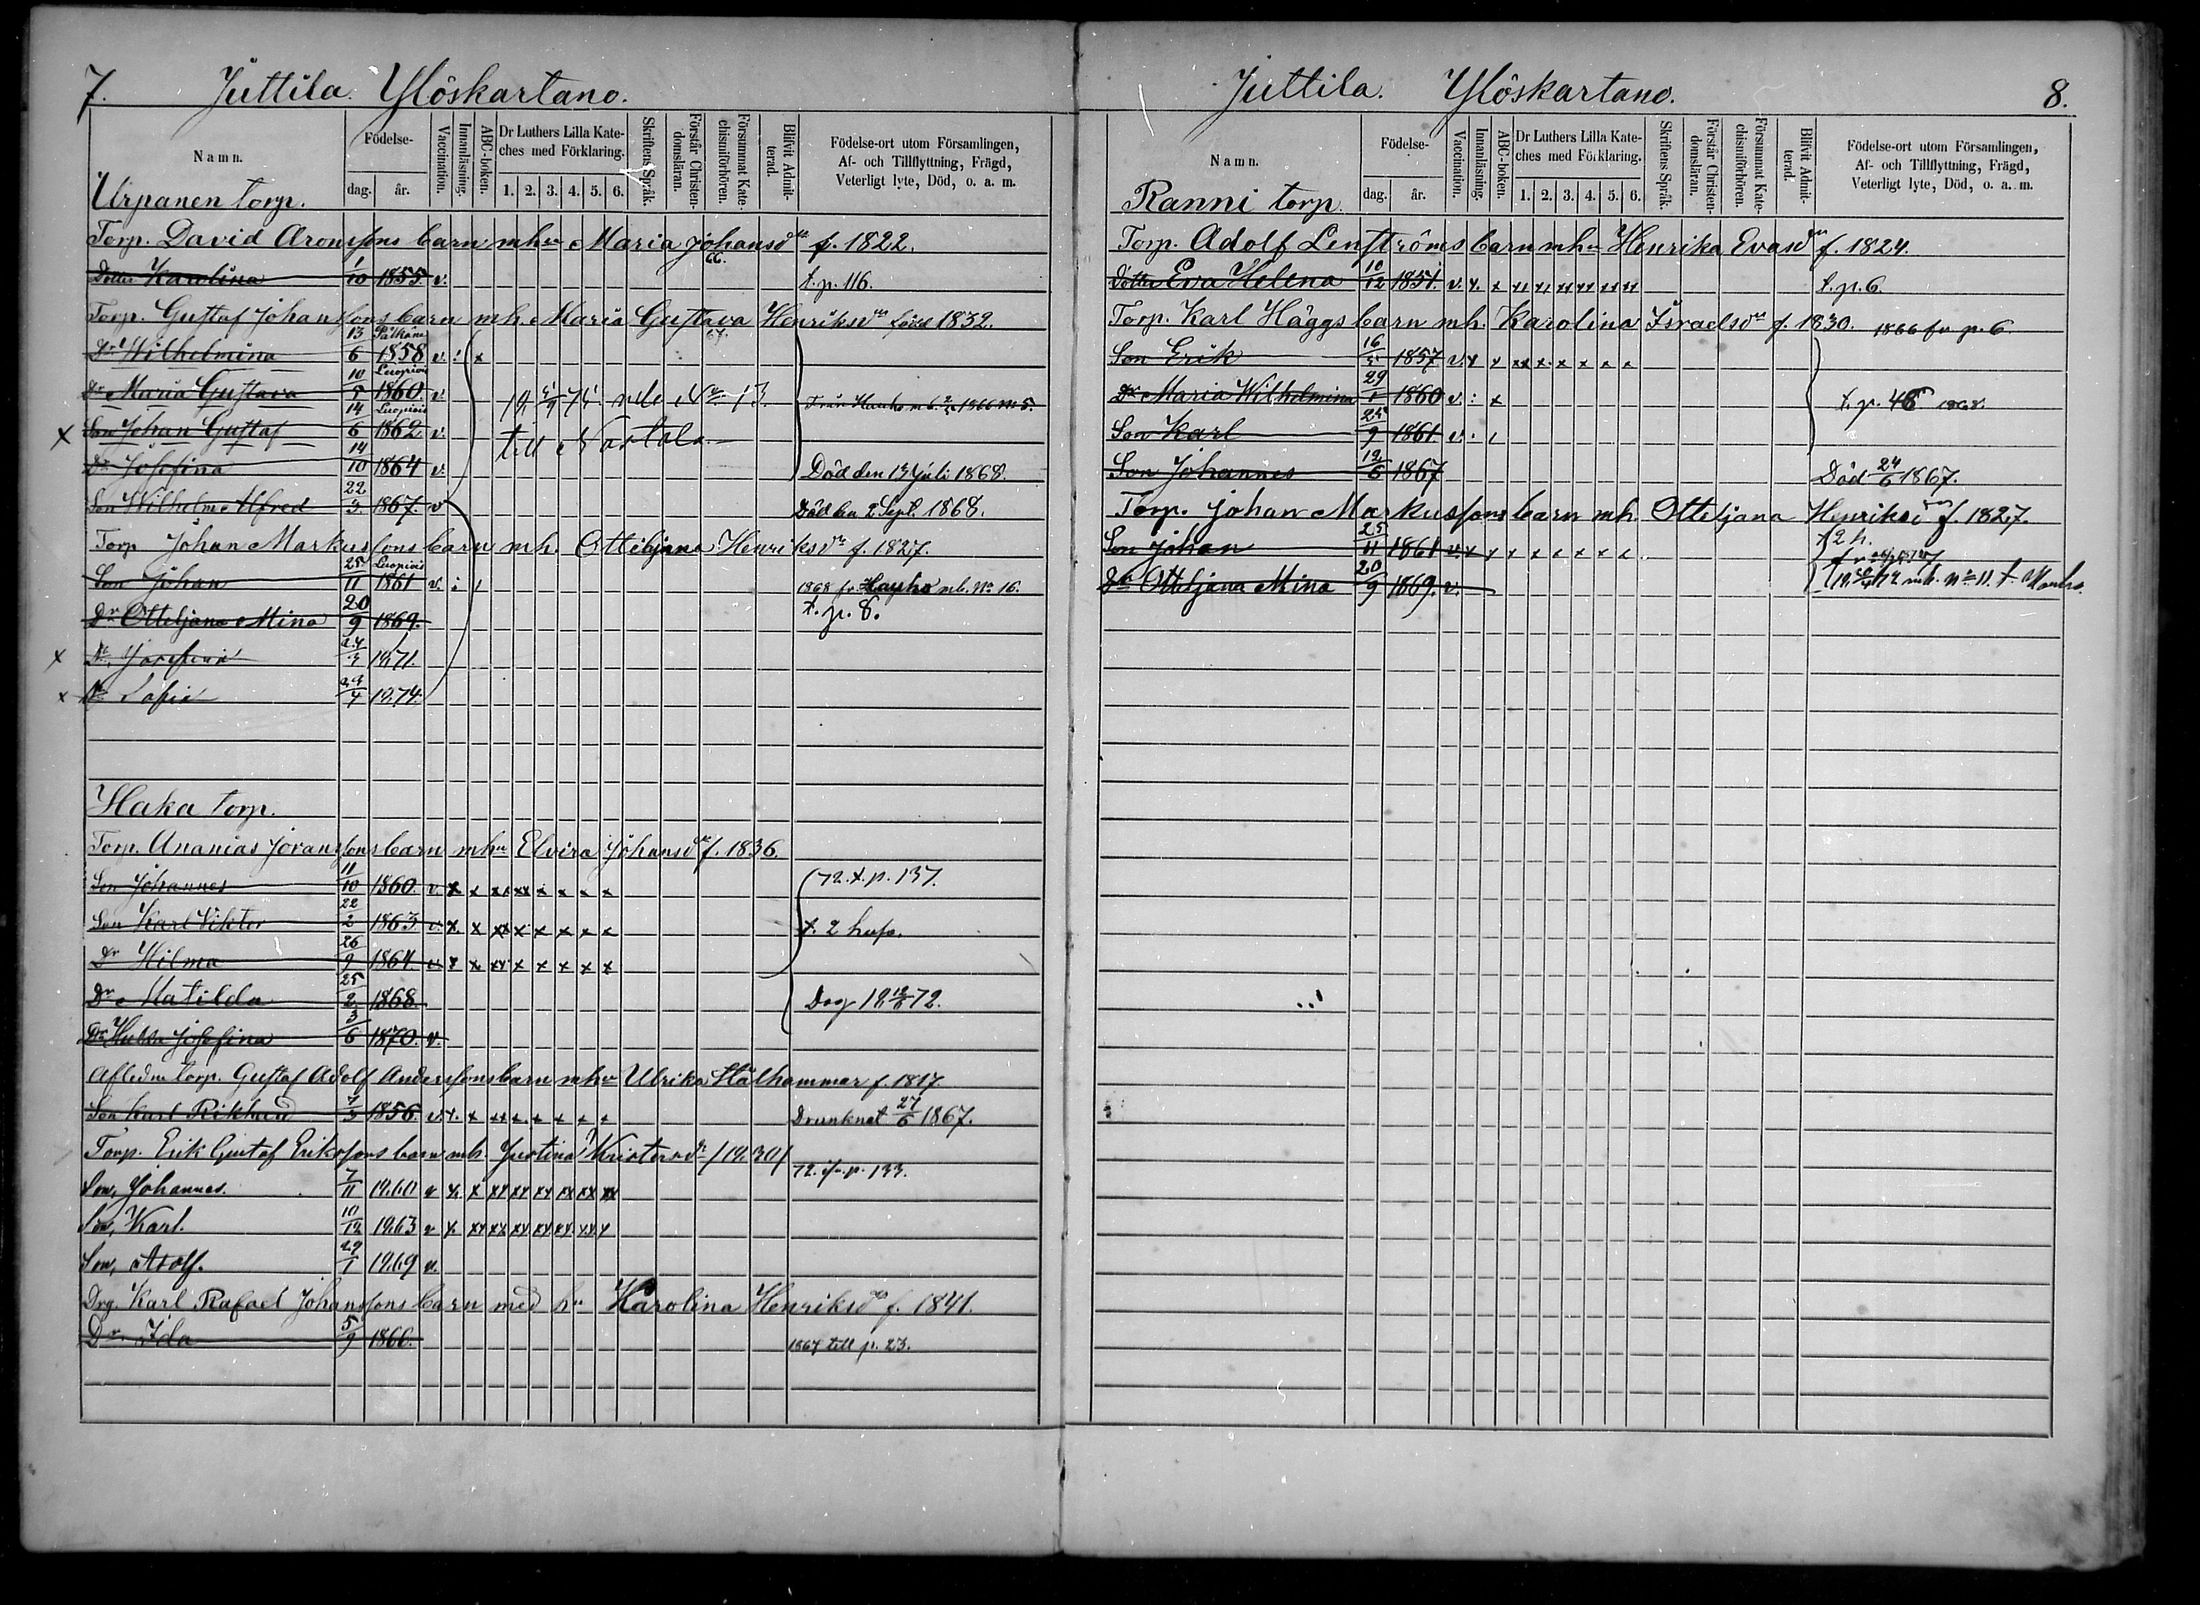 7. Juttila. Ylöskartano.
Namn.
Födelse-
dag. år.
Vaccination.
Innanläsning.
ABC-boken.
Dr Luthers Lilla Kateches med Förklaring.
1. 2. 3. 4. 5. 6.
Skriftens Språk.
Förstår Christendomsläran.
Försummat Katechismiförhören.
Blifvit Admitterad.
Födelse-ort utom Församlingen,
Af- och Tillflyttning, Frägd,
Veterligt lyte, Död, o. a. m.
Urpanen torp.
Torp. David Aronssons barn mhu Maria Johansdr f. 1822.
Dotter Karolina 1/10 1855. v. t. p. 116.
Torp. Gustaf Johanssons barn mh. Maria Gustava Henriksdr född 1832.
Dr Wilhelmina 13/6 Pälkäne 1858 v. : x
Dr Maria Gustava 10/5 Luopiois 1860. v.
Från Hauho mb. 1866 No 5.
x Son Johan Gustaf 14/6 Luopiois 1862 v. till
Dr Josefina 14/10 1864 v. Död den 13 Juli 1868.
Son Wilhelm Alfred 22/3 1867. v Död den 2 Sept. 1868.
Torp Johan Markussons barn mh. Ottiljana Henriksdr f. 1827.
Son Johan 25/11 Luopiois 1861 v. : 1 1868 fr Hauho mb. No 16.
Dr Ottiljana Mina 20/9 1869. t. p. 8.
x Dr Josefina 1871.
x Dr Sofia 1874.
Haka torp.
Torp. Ananias Joranssons barn mhu Elvira Johansdr f. 1836.
Son Johannes 11/10 1860. v x x xx xx x x x x 72. t. p. 137.
Son Karl Viktor 22/2 1863 v. x x xx x x x x x t. 2 hufo.
Dr Hilma 26/9 1864. v x x xx x x x x x
Dr Matilda 25/2 1868. Dog 72.
Dr Hulda Josefina 3/6 1870. v.
Afledne torp. Gustaf Adolf Anderssons barn mhu Ulrika Stålhammar f. 1817.
Son Karl Rikhard 7/3 1856 v. x. x xx x x x x x Drunknat 27/6 1867.
Torp. Erik Gustaf Erikssons barn mh. Justina Kristersdr /1830/
72. fr. p. 133.
Son, Johannes. 7/11 1860 v x x xx xx xx xx xx xx
Son, Karl. 10/12 1863 v x xx xx xx xx xx xx x
Son, Adolf. 29/1 1869 v.
Drg. Karl Rafael Johanssons barn med hu Karolina Henriksdr f. 1841.
Dr. Ida 5/9 1866. 1867 till p. 23.
Juttila. Ylöskartano. 8.
Namn.
Födelse-
dag. år.
Vaccination.
Innanläsning.
ABC-boken.
Dr Luthers Lilla Kateches med Förklaring.
1. 2. 3. 4. 5. 6.
Skriftens Språk.
Förstår Christendomsläran.
Försummat Katechismiförhören.
Blifvit Admitterad.
Födelse-ort utom Församlingen,
Af- och Tillflyttning, Frägd,
Veterligt lyte, Död, o. a. m.
Ranni torp.
Torp. Adolf Lenströms barn mhu Henrika Evasdr f. 1824.
Dotter Eva Helena 10/12 1851. v. x. x xx xx xx xx xx xx t. p. 6.
Torp. Karl Häggs barn mh. Karolina Israelsdr f. 1830. 1866 fr p. 6.
Son Erik 16/5 1857 v. x x xx x x x x x
Dr Maria Wilhelmina 29/1 1860 v : x t. p. 46 1868.
Son Karl 25/9 1861 v . 1
Son Johannes 12/6 1867 Död 24/6 1867.
Torp. Johan Markussons barn mh. Ottiljana Henriksdr f. 1827.
Son Johan 25/11 1861 v. x x x x x x x x t 2 h.
Dr Ottiljana Mina 20/9 1869. v.